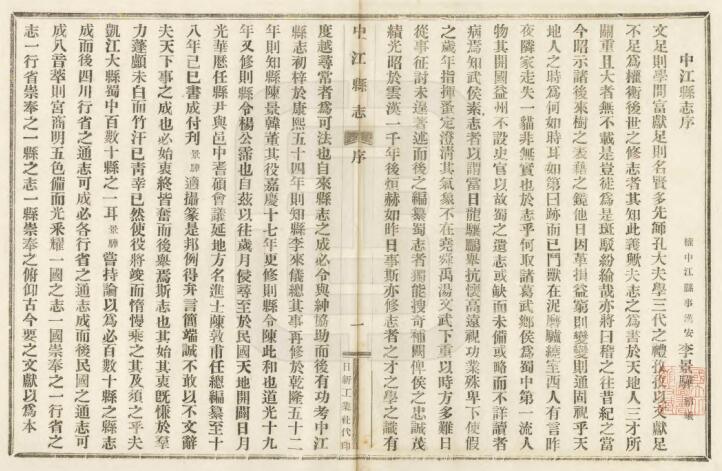 中江縣志序
權中江縣事漢安李景驊
文足則學問富獻足則名賢多先師孔大夫學三代之禮孜孜以文獻足
不足為權衡後世之修志者其知此義歟夫志之為書於天地人三才所
關重且大者無不載是豈徒為是斑駁紛綸哉亦將曰稽之往昔紀之當
今昭示諸後來樹之表藉之鏡他日因革損益窮則變變則通固視乎天
地人之時為何如時耳如第曰跡而已鬥獸在泥磨驢繞室西人有言昨
夜隣家走失一貓非無實也於志乎何取諸葛武鄉侯為蜀中第一流人
物其開國益州不設史官以故蜀之遺志或缺而未備或略而不詳讀者
病焉知武侯素志者以謂當日龍驤鵬舉抗懷高遠視功業殊卑下使假
之歲年指揮蚤定澄清其氣象不在堯舜禹湯文武下重以時方多難日
從事征討未遑著述而後之編纂蜀志者獨能搜奇補闕俾侯之忠誠茂
績光昭於雲漢一千年後烜赫如昨日事斯亦修志者之才之學之識有
中江縣志
序
一
日新工業社代印
度越尋常者為可法也自來縣志之成必令與紳協助而後有功考中江
縣志初梓於康熙五十四年則知縣李來儀總其事再修於乾隆五十二
年則知縣陳景韓董其役嘉慶十七年更修則縣令陳此和也道光十九
年又修則縣令楊公霈也自茲以往歲月侵尋至於民國天地開闢日月
光華歷任縣尹與邑中耆碩會議延地方名進士陳敦甫任總編纂至十
八年己巳書成付刋景驊適攝篆是邦例得弁言簡端誠不敢以不文辭
夫天下事之成也必始衷終皆奮而後舉焉斯志也其始其衷旣慊於羣
力蓬顱未白而竹汗已靑幸已然使役將竣而惰慢乘之其及須之乎夫
凱江大縣蜀中百數十縣之一耳景驊嘗持論以為必百數十縣之縣志
成而後四川行省之通志可成必各行省之通志成而後民國之通志可
成八音萃則宮商明五色備而光釆耀一國之志一國崇奉之一行省之
志一行省崇奉之一縣之志一縣崇奉之俯仰古今要之文獻以為本